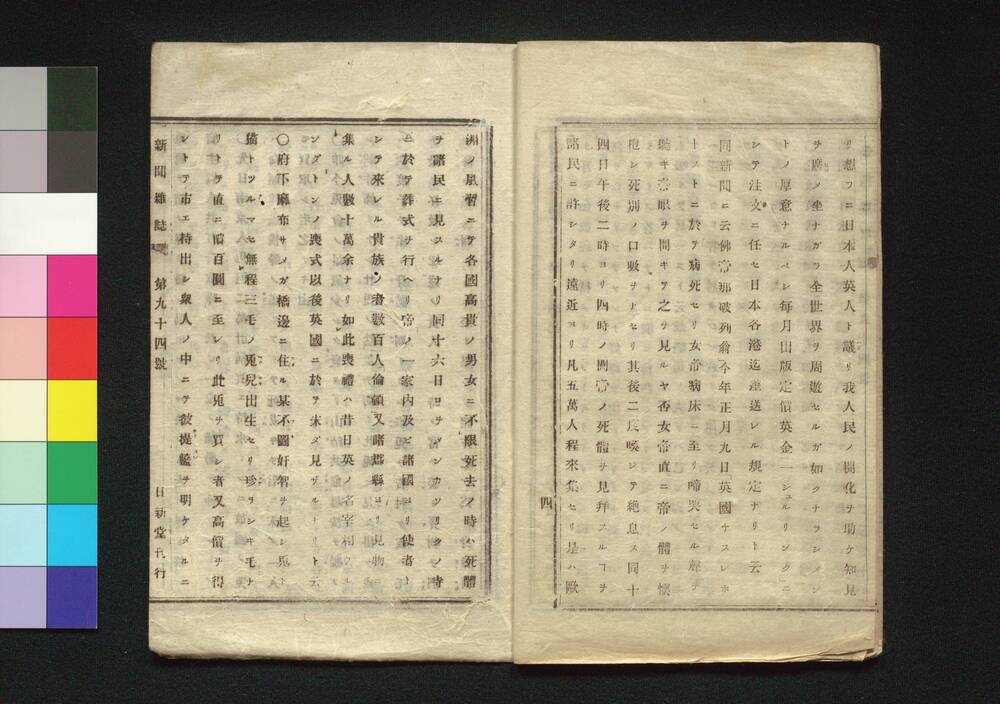 リ想フニ日本人英人ト議リ我人民ノ開化ヲ助ケ知見
ヲ廣メ坐ナガラ全世界ヲ周遊セルガ如クナラシメン
トノ厚意ナルベシ毎月出版定價英金一シュルリングニ
シテ注文ニ任セ日本各港迄差送レル規定ナリト云
同新聞ニ云佛帝那破列翁今年正月九日英國ケスレホ
ーストニ於テ病死セリ女帝病床ニ至リ啼哭セル聲ヲ
聽キ帝眼ヲ開キテ之ヲ見ルヤ否女帝直ニ帝ノ體ヲ懷
抱シ死別ノ口吸ヲナセリ其後二反喚シテ絶息ス同十
四日午後二時ヨリ四時ノ間帝ノ死體ヲ見拜スルコヲ
諸民ニ許シタリ遠近ヨリ凡五萬人程來集セリ是ハ歐
四
洲ノ風習ニテ各國高貴ノ男女ニ不限死去ノ時ハ死體
ヲ諸民ニ見スルナリ同十六日ロサンカツリクノ寺
ニ於テ葬式ヲ行ヘリ帝ノ一家內及ビ諸國ヨリ使者ト
シテ來レル貴族ノ者數百人倫頓又諸郡縣ヨリ見物ニ
集ル人數十萬余ナリ如此喪禮ハ昔日英ノ名宰相ウル
ングトンノ喪式以後英國ニ於テ未ダ見ザルナリト云
〇府下麻布サメガ橋邊ニ住ル某不圖奸智ヲ起シ兎ト
猫トツルマセ無程三毛ノ兎兒出生セリ珍ラシキ毛ナ
リトテ直ニ價百圓ニ至レリ此兎ヲ買シ者又高價ヲ得
ントテ市エ持出シ衆人ノ中ニテ彼提籃ヲ明ケタルニ
新聞雜誌 第九十四號 日新堂刊行